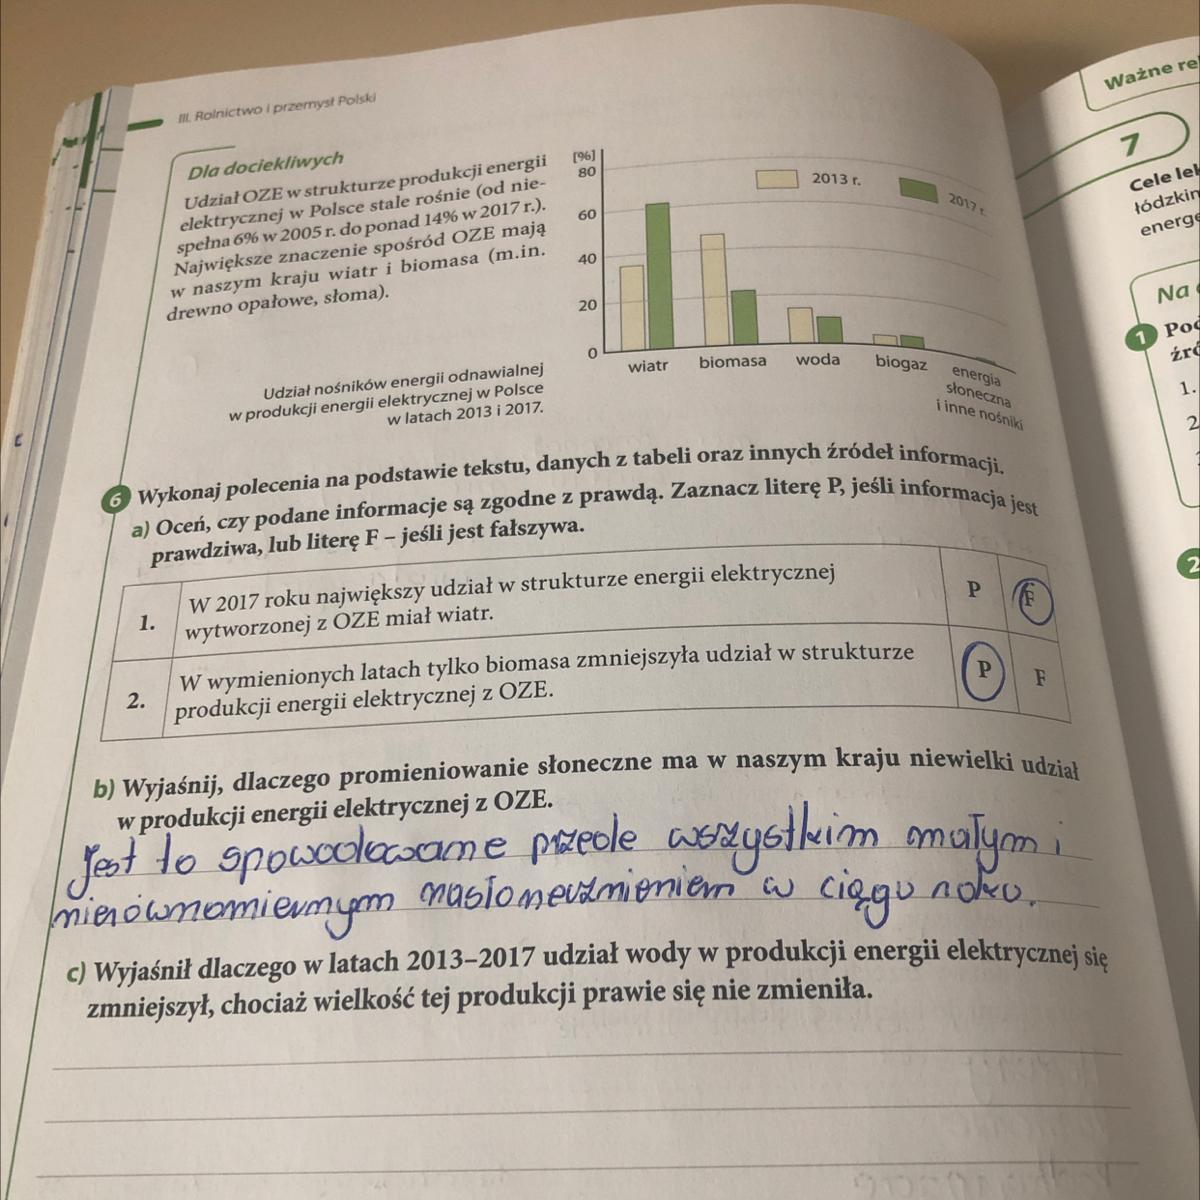 III. Rolnictwo i przemysł Polski
Dla dociekliwych
Udział OZE w strukturze produkcji energii
elektrycznej w Polsce stale rośnie (od nie-
spełna 6% w 2005 r. do ponad 14% w 2017 r.).
Największe znaczenie spośród OZE mają
w naszym kraju wiatr i biomasa (m.in.
drewno opałowe, słoma).
Udział nośników energii odnawialnej
w produkcji energii elektrycznej w Polsce
w latach 2013 i 2017.
[%]
80
60
40
20
0
2013 r.
2017 r.
wiatr
biomasa
woda
biogaz
energia
słoneczna
i inne nośniki
6 Wykonaj polecenia na podstawie tekstu, danych z tabeli oraz innych źródeł informacji.
a) Oceń, czy podane informacje są zgodne z prawdą. Zaznacz literę P, jeśli informacja jest
prawdziwa, lub literę F – jeśli jest fałszywa.
1. W 2017 roku największy udział w strukturze energii elektrycznej
wytworzonej z OZE miał wiatr. P F
2. W wymienionych latach tylko biomasa zmniejszyła udział w strukturze
produkcji energii elektrycznej z OZE. P F
b) Wyjaśnij, dlaczego promieniowanie słoneczne ma w naszym kraju niewielki udział
w produkcji energii elektrycznej z OZE.
Jest to spowodowane przede wszystkim małym i
nierównomiernym nasłonecznieniem w ciągu roku.
c) Wyjaśnił dlaczego w latach 2013–2017 udział wody w produkcji energii elektrycznej się
zmniejszył, chociaż wielkość tej produkcji prawie się nie zmieniła.
Ważne re
7
Cele lek
łódzkin
energe
Na
1 Pod
źró
1.
2
2